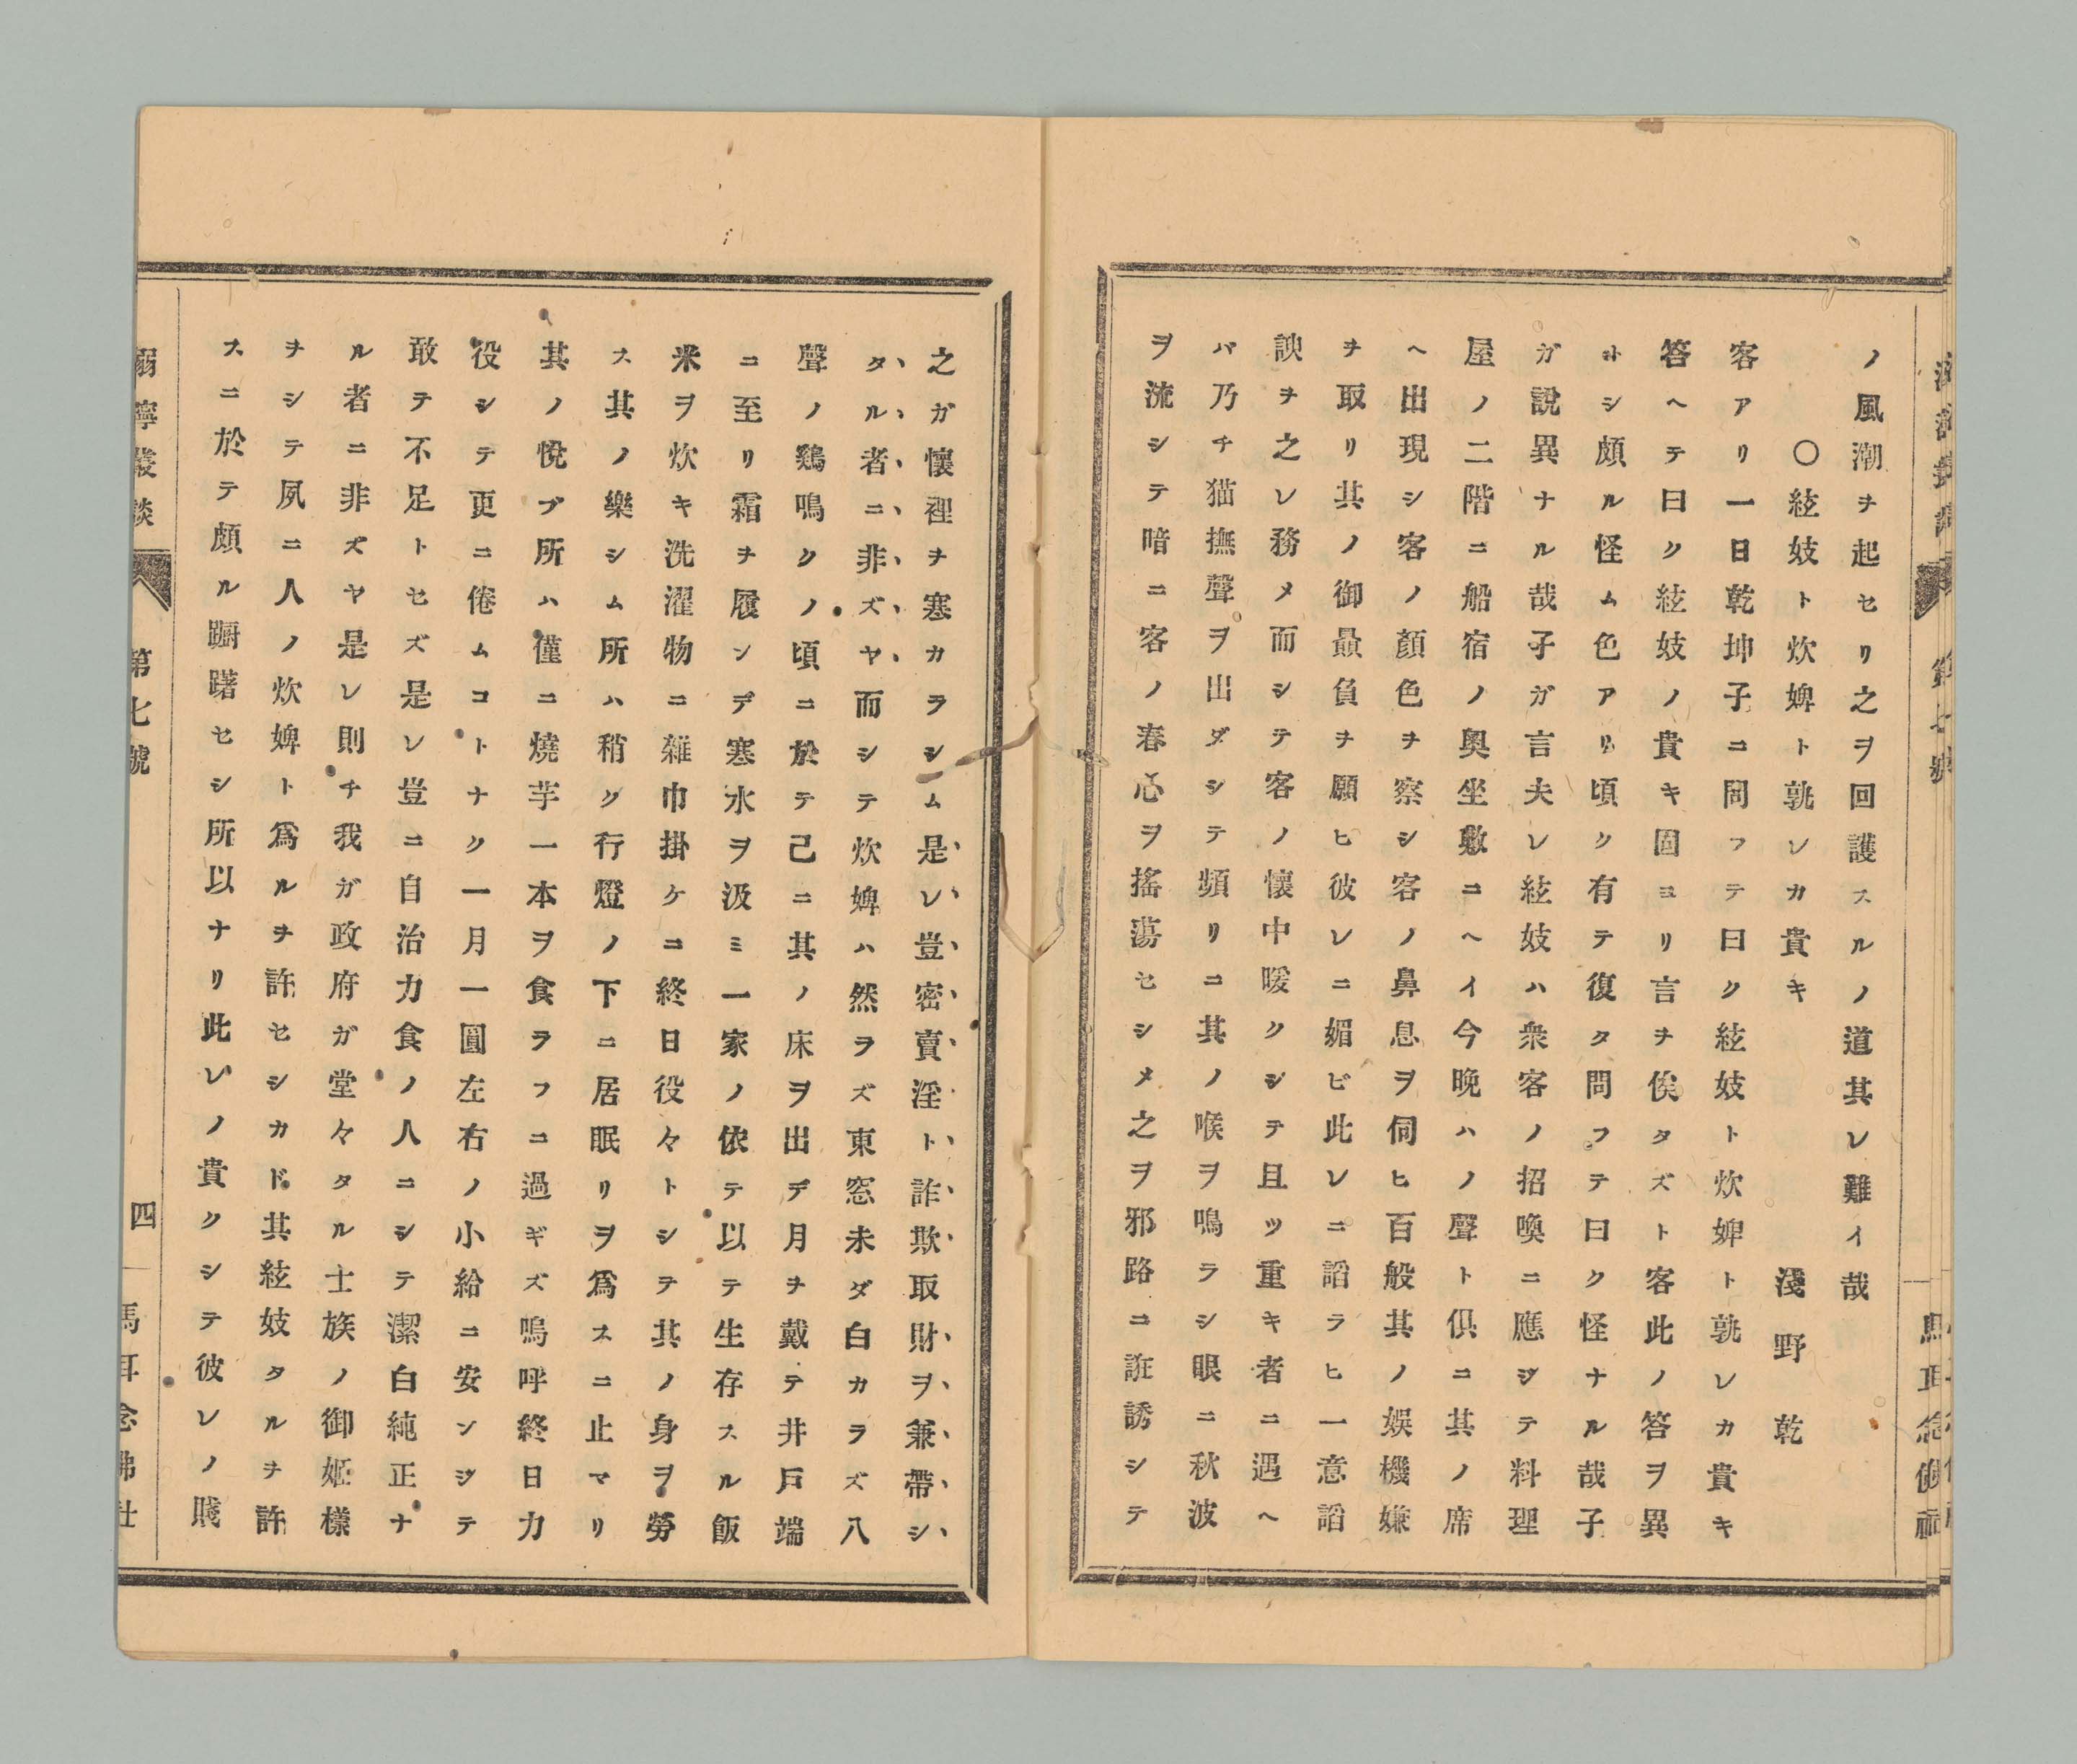 ノ風潮ヲ起セリ之ヲ回護スルノ道其レ難イ哉
〇絃妓ト炊婢ト孰レカ貴キ
淺野乾
客アリ一日乾坤子ニ問フテ曰ク絃妓ト炊婢ト孰レカ貴キ
答ヘテ曰ク絃妓ノ貴キ固ヨリ言ヲ俟タズト客此ノ答ヲ異
トシ頗ル怪ム色アリ頃ク有テ復タ問フテ曰ク怪ナル哉子
ガ說異ナル哉子ガ言夫レ絃妓ハ衆客ノ招喚ニ應ジテ料理
屋ノ二階ニ船宿ノ奧坐敷ニヘイ今晚ハノ聲ト俱ニ其ノ席
ヘ出現シ客ノ顏色ヲ察シ客ノ鼻息ヲ伺ヒ百般其ノ娛機嫌
ヲ取リ其ノ御贔負ヲ願ヒ彼レニ媚ビ此レニ謟ラヒ一意謟
諛ヲ之レ務メ而シテ客ノ懷中暖クシテ且ツ重キ者ニ遇ヘ
バ乃チ猫撫聲ヲ出ダシテ頻リニ其ノ喉ヲ鳴ラシ眼ニ秋波
ヲ流シテ暗ニ客ノ春心ヲ搖蕩セシメ之ヲ邪路ニ誑誘シテ
之ガ懷裡ヲ塞カラシム是レ豈密賣淫ト詐欺取財ヲ兼帶シ
タル者ニ非ズヤ而シテ炊婢ハ然ラズ東窓未ダ白カラズ八
聲ノ鷄鳴クノ頃ニ於テ己ニ其ノ床ヲ出デ月ヲ戴テ井戶端
ニ至リ霜ヲ履ンデ寒水ヲ汲ミ一家ノ依テ以テ生存スル飯
米ヲ炊キ洗濯物ニ雜巾掛ケニ終日役々トシテ其ノ身ヲ勞
ス其ノ樂シム所ハ稍ク行燈ノ下ニ居眠リヲ爲スニ止マリ
其ノ悅ブ所ハ僅ニ燒芋一本ヲ食ラフニ過ギズ嗚呼終日力
役シテ更ニ倦ムコトナク一月一圓左右ノ小給ニ安ンジテ
敢テ不足トセズ是レ豈ニ自治力食ノ人ニシテ潔白純正ナ
ル者ニ非ズヤ是レ則チ我ガ政府ガ堂々タル士族ノ御姬樣
ヲシテ夙ニ人ノ炊婢ト爲ルヲ許セシカド其絃妓タルヲ許
スニ於テ頗ル躊躇セシ所以ナリ此レノ貴クシテ彼レノ賤
第七號
四